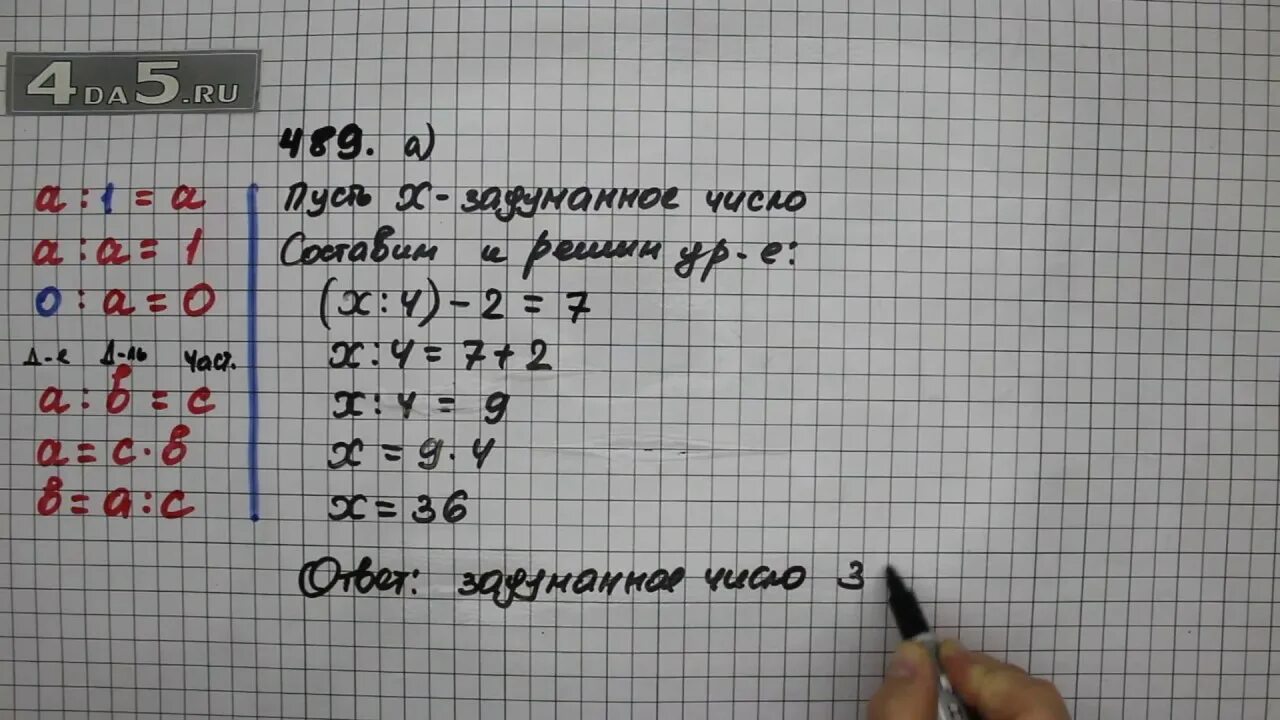 4DA5.RU
489. а)
a : 1 = a
a : a = 1
0 : a = 0
Д-е Д-ль Част.
a : в = с
a = с · в
в = a : с
Пусть х - задуманное число
Составим и решим ур-е:
(х : 4) - 2 = 7
х : 4 = 7 + 2
х : 4 = 9
х = 9 · 4
х = 36
Ответ: задуманное число 3